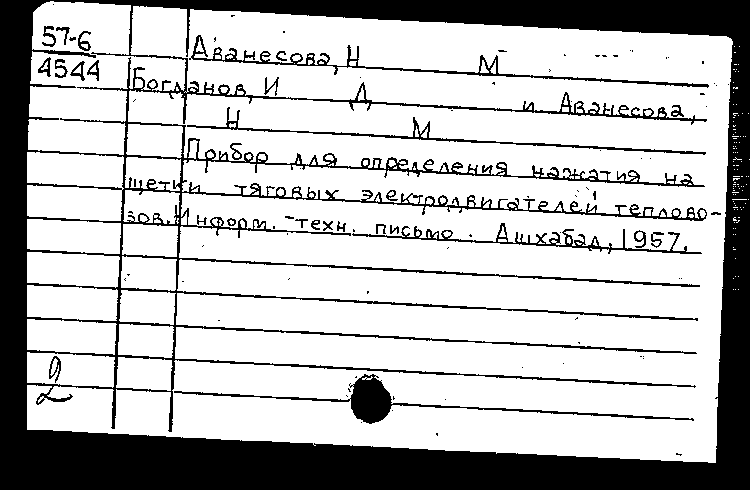 57-6
4544
Аванесова, Н М
Богданов, И Д и Аванесова,
Н М
Прибор для определения нажатия на
щетки тяговых электродвигателей теплово-
зов. Информ.-техн. письмо. Ашхабад, 1957.
2